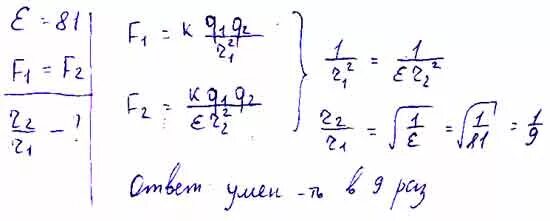 ε = 81
F₁ = F₂
r₂/r₁ - ?
F₁ = k q₁q₂/r₁²
F₂ = k q₁q₂/εr₂²
1/r₁² = 1/εr₂²
r₂/r₁ = √(1/ε) = √(1/81) = 1/9
Ответ умен-ть в 9 раз